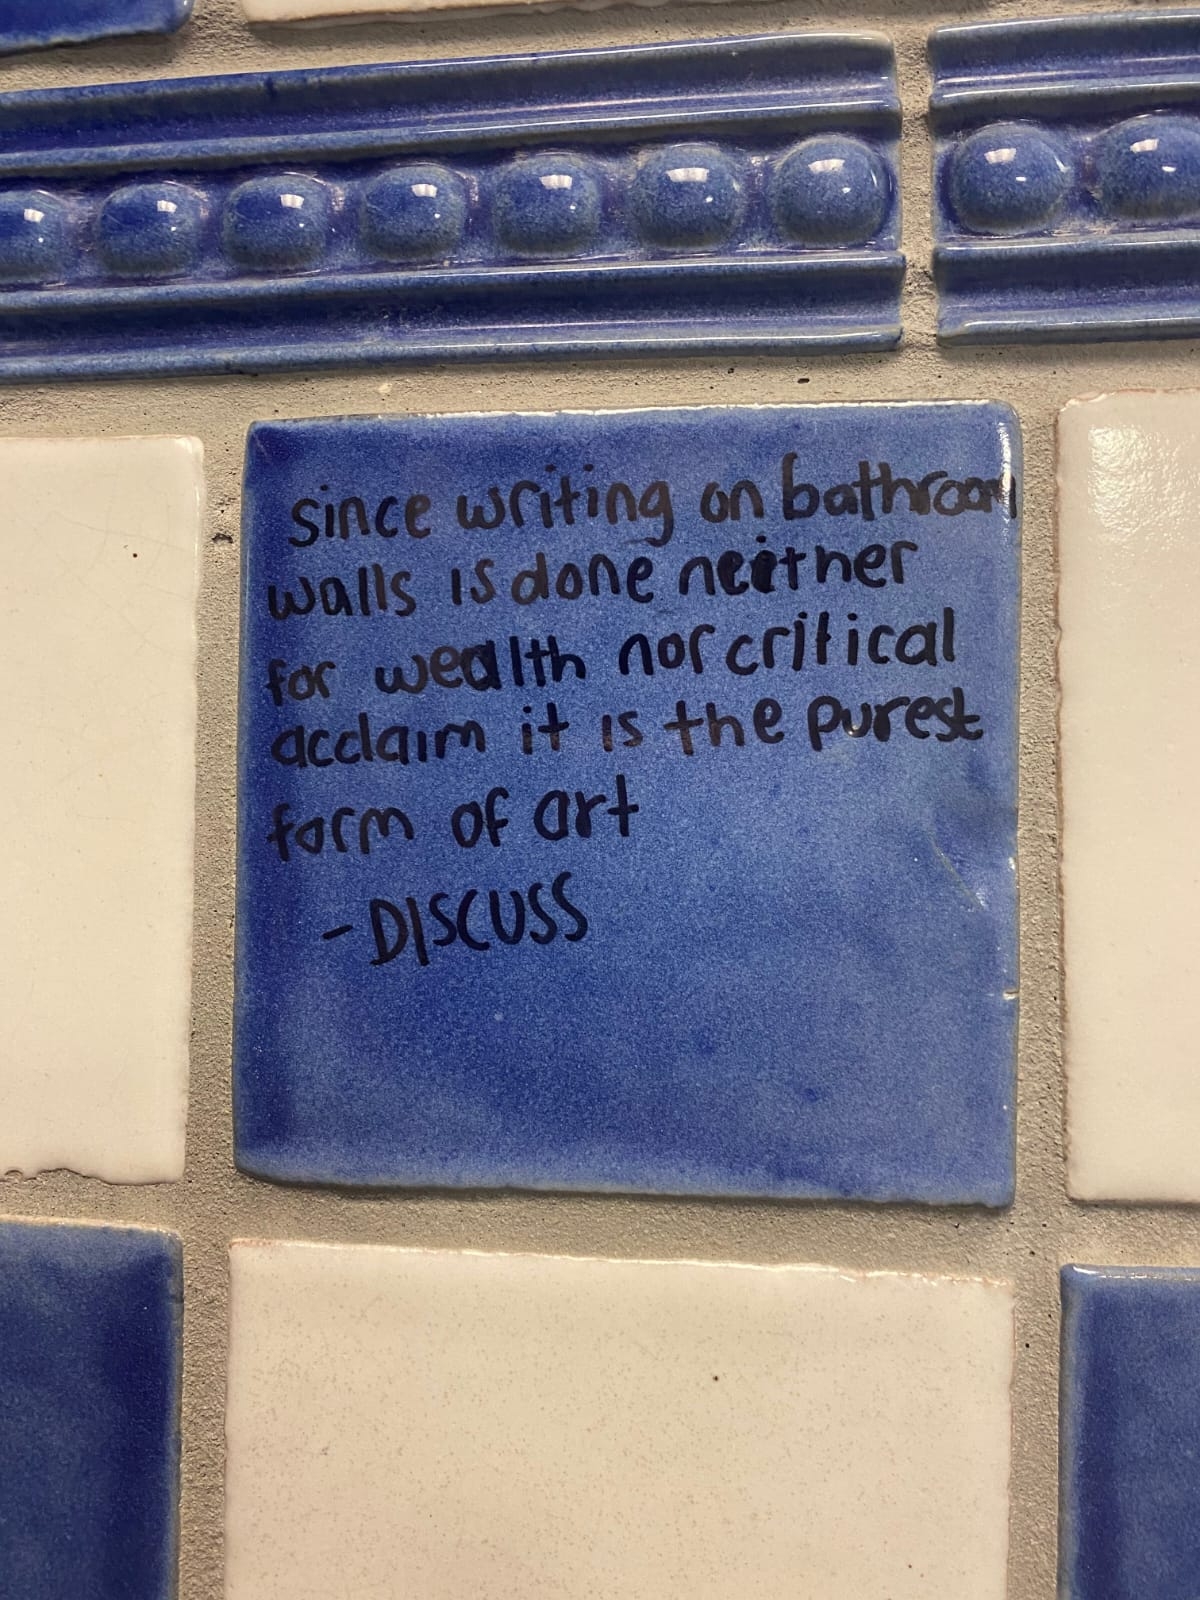 since writing on bathroom
walls is done neither
for wealth nor critical
acclaim it is the purest
form of art
- DISCUSS